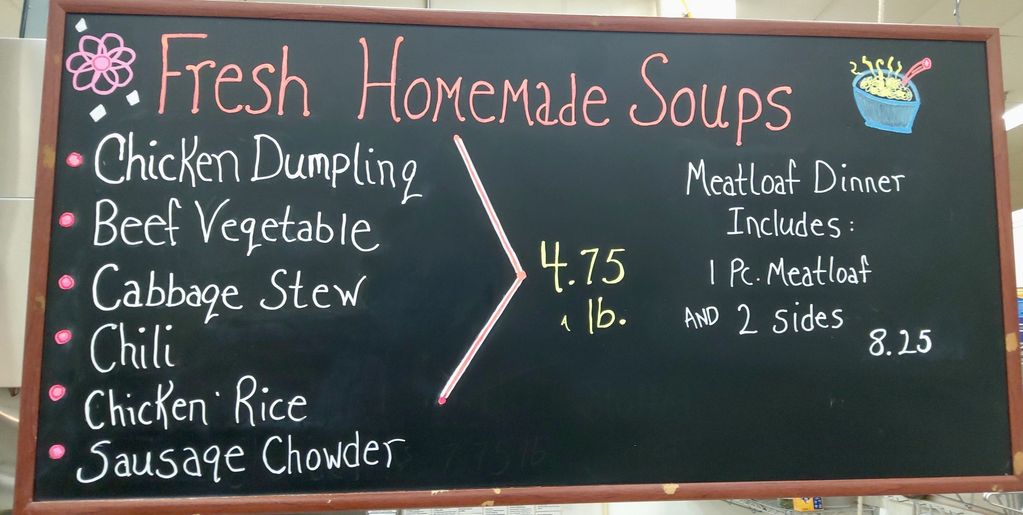 Fresh Homemade Soups
Chicken Dumpling
Beef Vegetable
Cabbage Stew
Chili
Chicken Rice
Sausage Chowder
4.75
lb.
Meatloaf Dinner
Includes:
1 Pc. Meatloaf
AND 2 sides
8.25